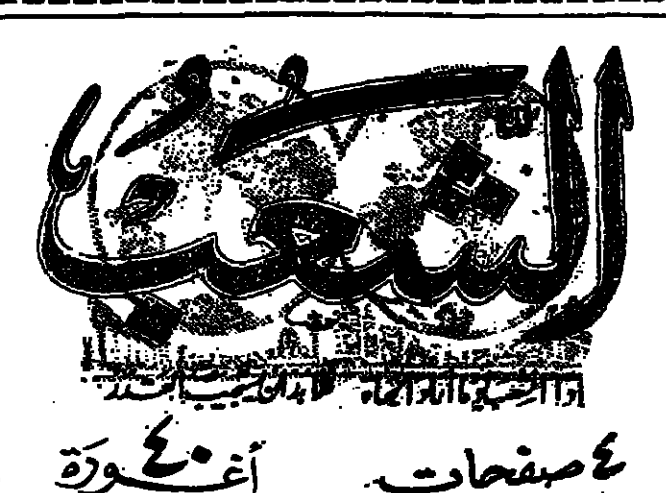 الشعب
إذا الشعب يوما أراد الحياة فلا بد أن يستجيب القدر
٤ صفحات ٤٠ أغورة